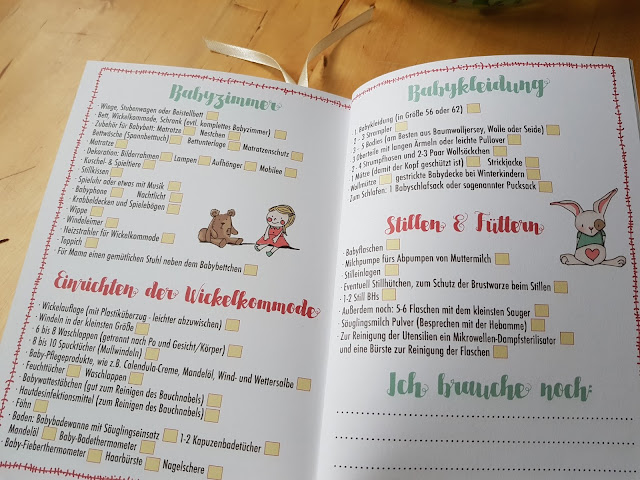 Babyzimmer
· Wiege, Stubenwagen oder Beistellbett
· Bett, Wickelkommode, Schrank (evtl. komplettes Babyzimmer)
· Zubehör für Babybett: Matratze Nestchen
Bettwäsche (Spannbettuch) Bettunterlage Matratzenschutz
Matratze
· Dekoration: Bilderrahmen Lampen Aufhänger Mobilee
· Kuschel- & Spieltiere
· Stillkissen
· Spieluhr oder etwas mit Musik
· Babyphone Nachtlicht
· Krabbeldecken und Spielebögen
· Wippe
· Windeleimer
· Heizstrahler für Wickelkommode
· Teppich
· Für Mama einen gemütlichen Stuhl neben dem Babybettchen
Einrichten der Wickelkommode
· Wickelauflage (mit Plastiküberzug - leichter abzuwischen)
· Windeln in der kleinsten Größe
· 6 bis 8 Waschlappen (getrennt nach Po und Gesicht/Körper)
· 8 bis 10 Spucktücher (Mullwindeln)
· Baby-Pflegeprodukte, wie z.B. Calendula-Creme, Mandelöl, Wind- und Wettersalbe
· Feuchttücher Waschlappen
· Babywattestäbchen (gut zum Reinigen des Bauchnabels)
· Hautdesinfektionsmittel (zum Reinigen des Bauchnabels)
· Föhn
· Baden: Babybadewanne mit Säuglingseinsatz 1-2 Kapuzenbadetücher
Mandelöl Baby-Badethermometer
· Baby-Fieberthermometer Haarbürste Nagelschere
Babykleidung
1 Babykleidung (in Größe 56 oder 62)
2 - 3 Strampler
3 - 5 Bodies (am Besten aus Baumwolljersey, Wolle oder Seide)
3 Oberteile mit langen Armeln oder leichte Pullover
2 - 4 Strumpfhosen und 2-3 Paar Wollsöckchen
1 Mütze (damit der Kopf geschützt ist) Strickjacke
Wollmütze gestrickte Babydecke bei Winterkindern
Zum Schlafen: 1 Babyschlafsack oder sogenannter Pucksack
Stillen & Füttern
· Babyflaschen
· Milchpumpe fürs Abpumpen von Muttermilch
· Stilleinlagen
· Eventuell Stillhütchen, zum Schutz der Brustwarze beim Stillen
· 1-2 Still BHs
· Außerdem noch: 5-6 Flaschen mit dem kleinsten Sauger
· Säuglingsmilch Pulver (Besprechen mit der Hebamme)
· Zur Reinigung der Utensilien ein Mikrowellen-Dampfsterilisator
und eine Bürste zur Reinigung der Flaschen
Ich brauche noch: